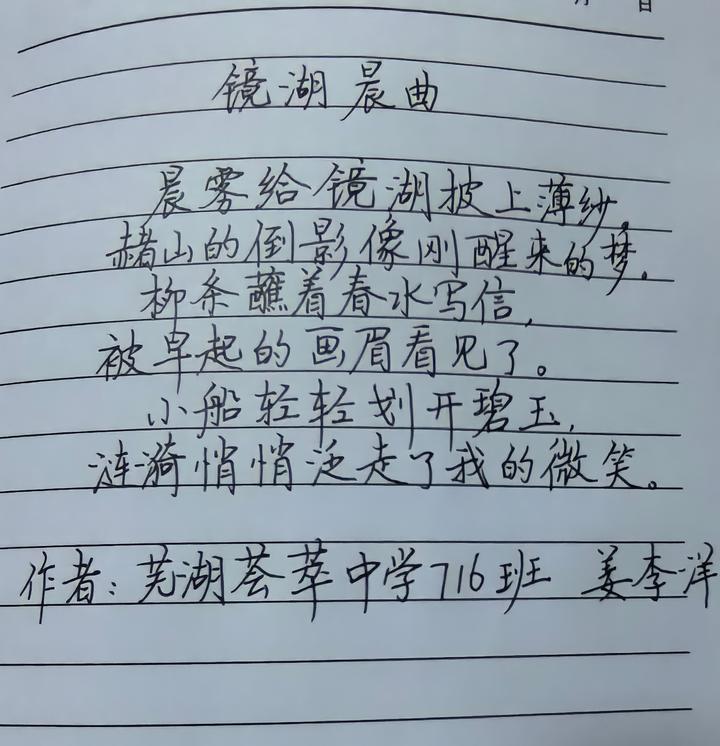 镜湖晨曲
晨雾给镜湖披上薄纱，
赭山的倒影像刚醒来的梦。
柳条蘸着春水写信，
被早起的画眉看见了。
小船轻轻划开碧玉，
涟漪悄悄泛走了我的微笑。
作者：芜湖荟萃中学716班 姜李洋